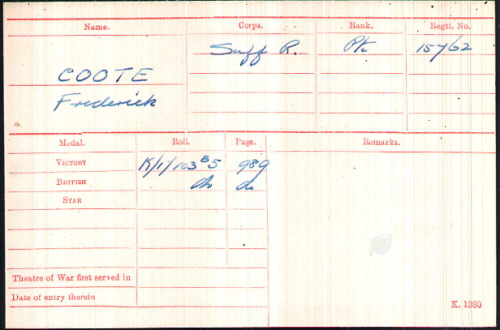 Name. Corps. Rank. Regtl. No.
Suff R. Pte 15762
COOTE
Frederick
Medal. Roll. Page. Remarks.
VICTORY K/1/103 B5 989
BRITISH do do
STAR
Theatre of War first served in
Date of entry therein
K. 1380